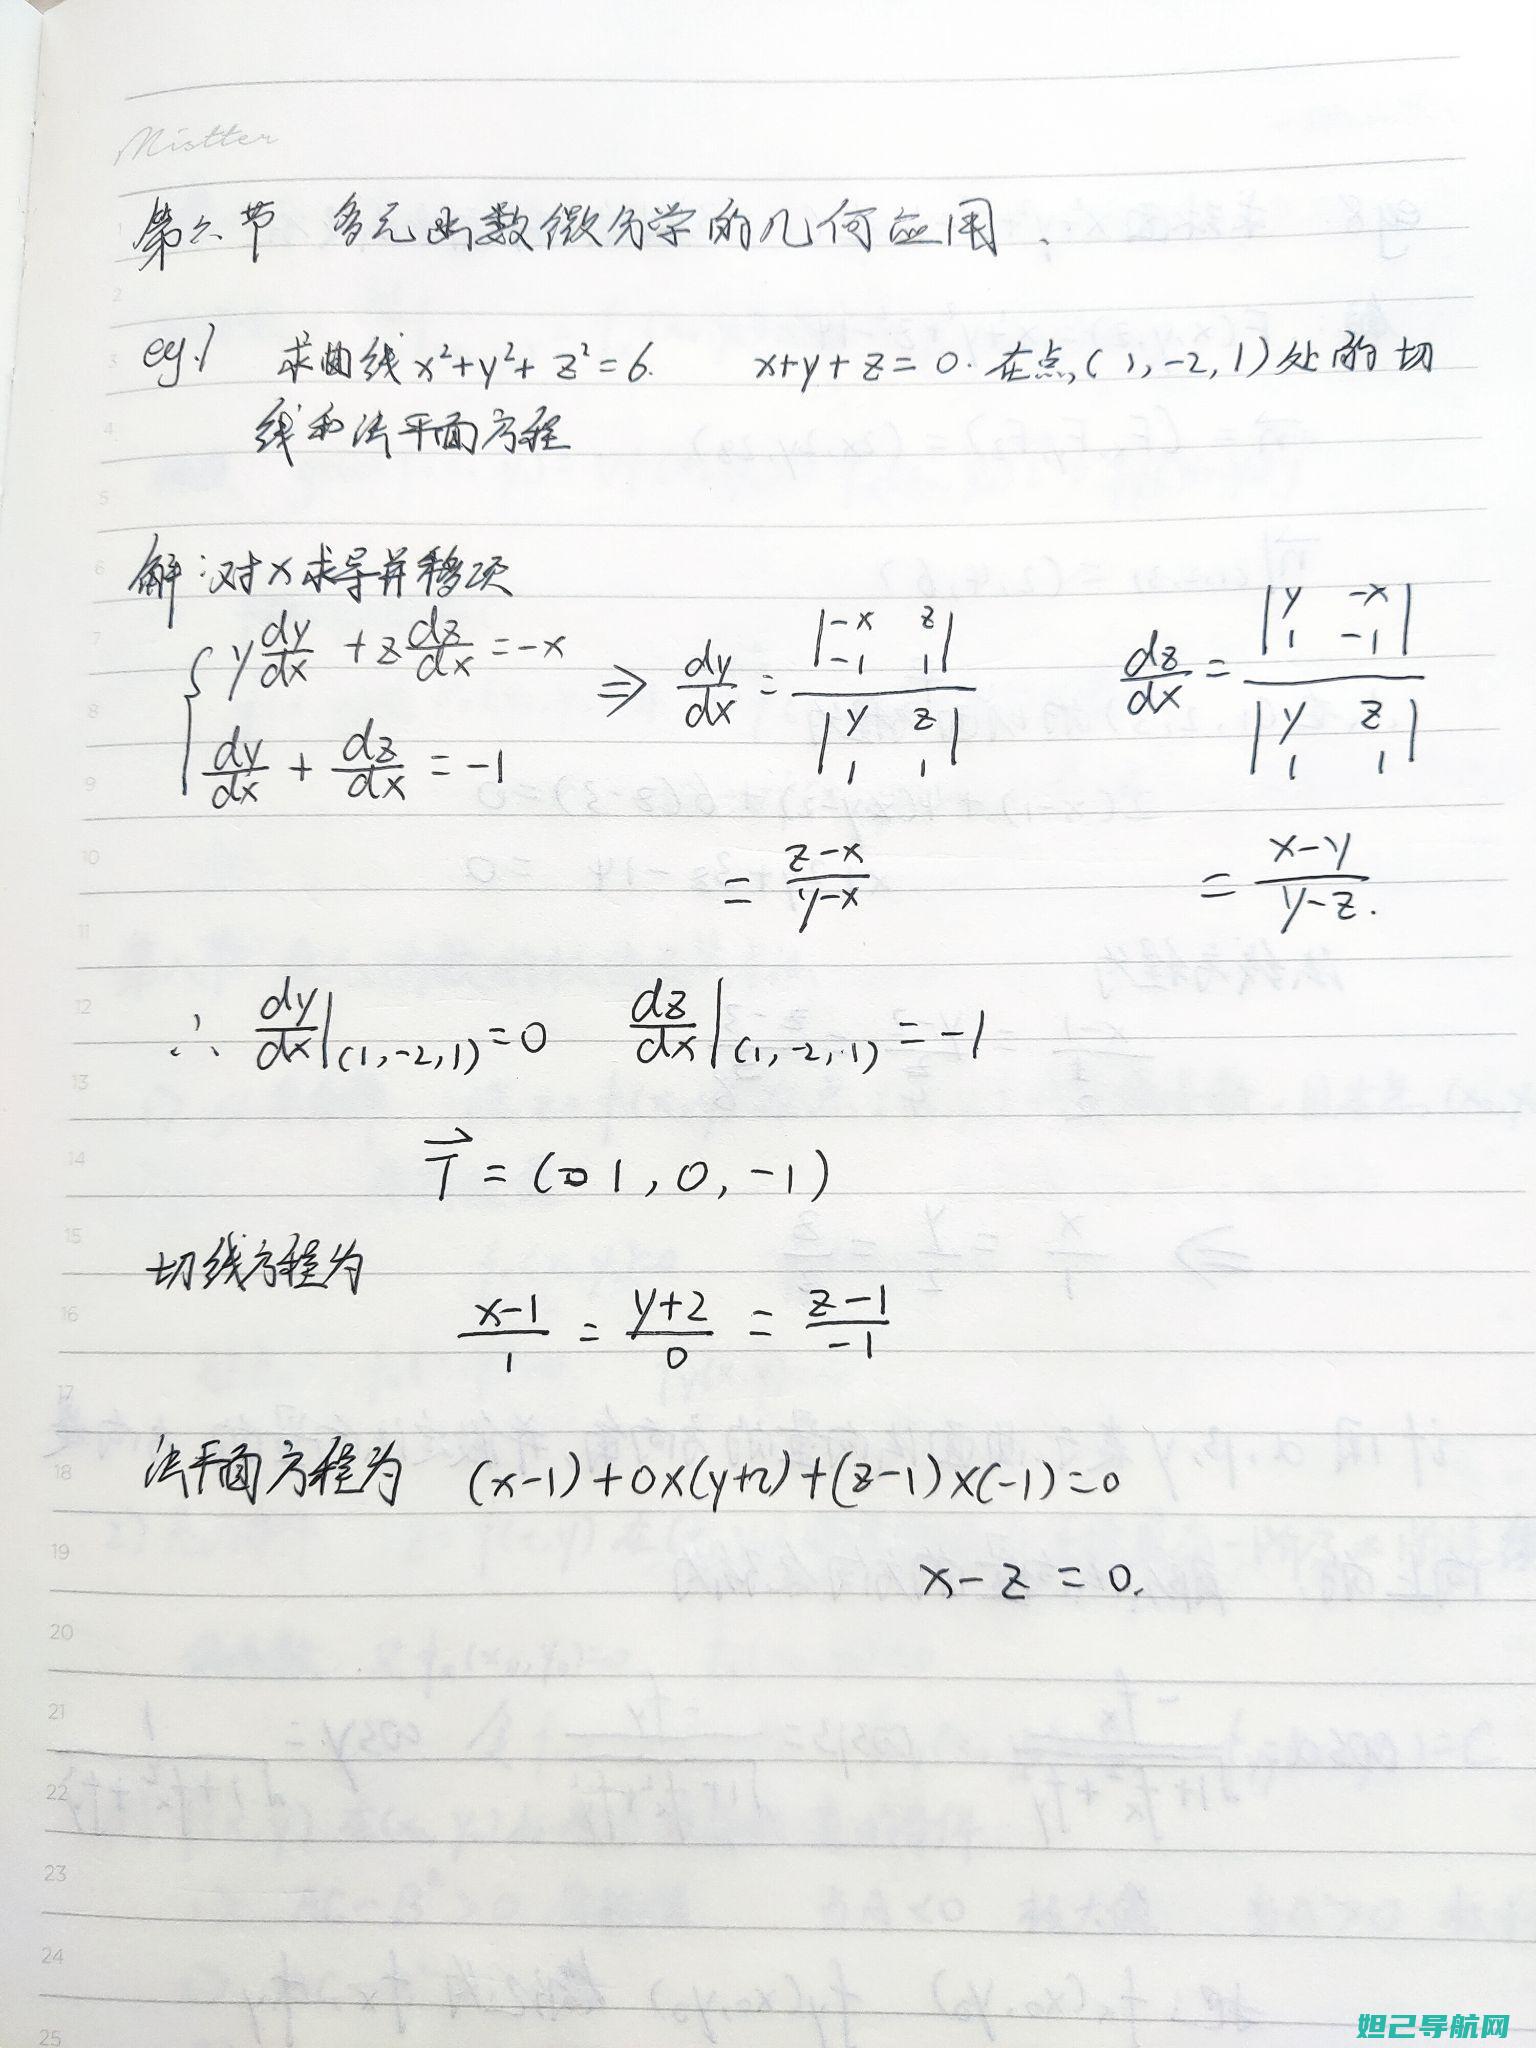 Mistter
第六节 多元函数微分学的几何应用.
eg.1 求曲线 x²+y²+z²=6. x+y+z=0. 在点(1,-2,1)处的切
线和法平面方程
解:对x求导并移项
{ y dy/dx + z dz/dx = -x ⇒ dy/dx = |-x z; -1 1| / |y z; 1 1| dz/dx = |y -x; 1 -1| / |y z; 1 1|
dy/dx + dz/dx = -1
= (z-x)/(y-x) = (x-y)/(y-z).
∴ dy/dx|(1,-2,1) = 0 dz/dx|(1,-2,1) = -1
T⃗ = (1, 0, -1)
切线方程为
(x-1)/1 = (y+2)/0 = (z-1)/-1
法平面方程为 (x-1)+0×(y+2)+(z-1)×(-1)=0
x-z=0.
妲己导航网